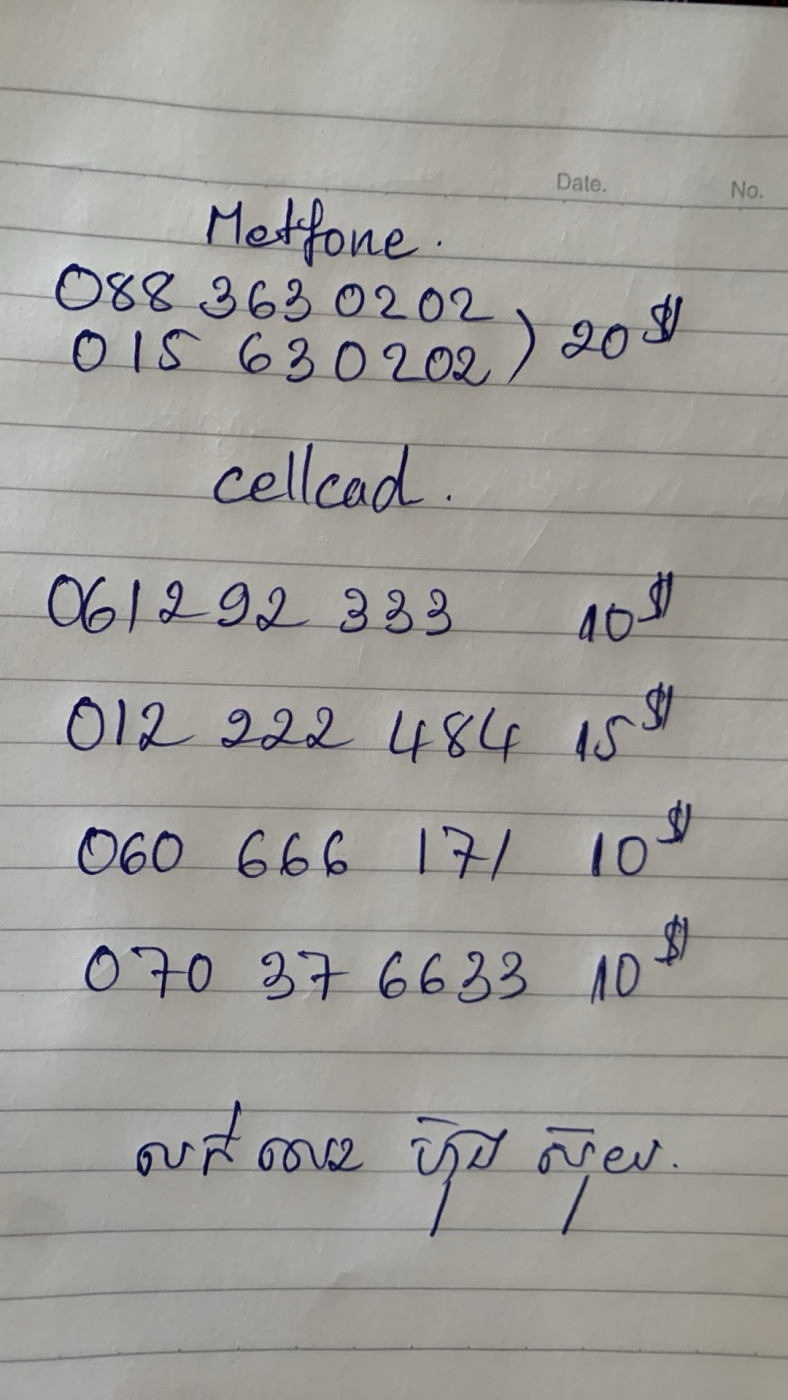 Date. No.
Metfone.
088 3630202
015 630202 ) 20$
cellcad.
061 292 333 10$
012 222 484 15$
060 666 171 10$
070 37 6633 10$
លក់ លេង ហ៊ុង ស៊ុយ.